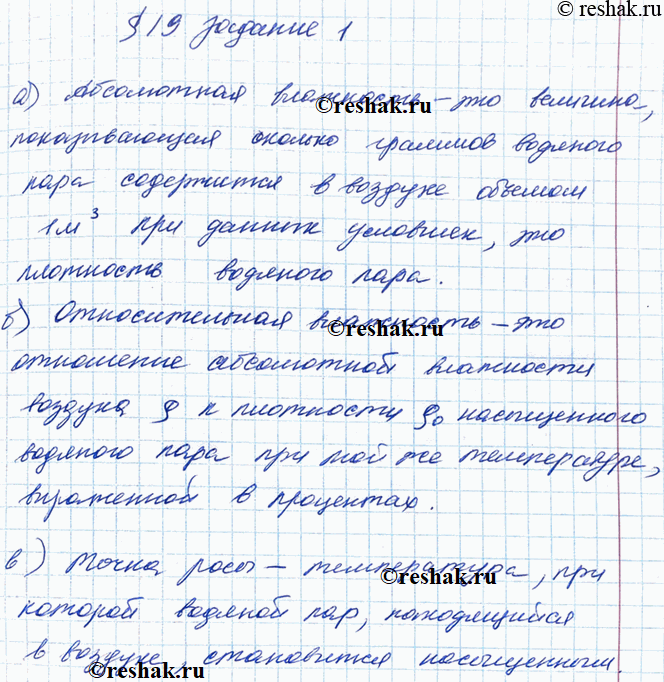 © reshak.ru
§ 19 задание 1
а) Абсолютная влажность – это величина,
©reshak.ru
показывающая сколько граммов водяного
пара содержится в воздухе объемом
1м³ при данных условиях, это
плотность водяного пара.
б) Относительная влажность – это
©reshak.ru
отношение абсолютной влажности
воздуха ρ к плотности ρ₀ насыщенного
водяного пара при той же температуре,
выраженной в процентах.
в) Точка росы – температура, при
©reshak.ru
которой водяной пар, находящийся
в воздухе, становится насыщенным.
©reshak.ru